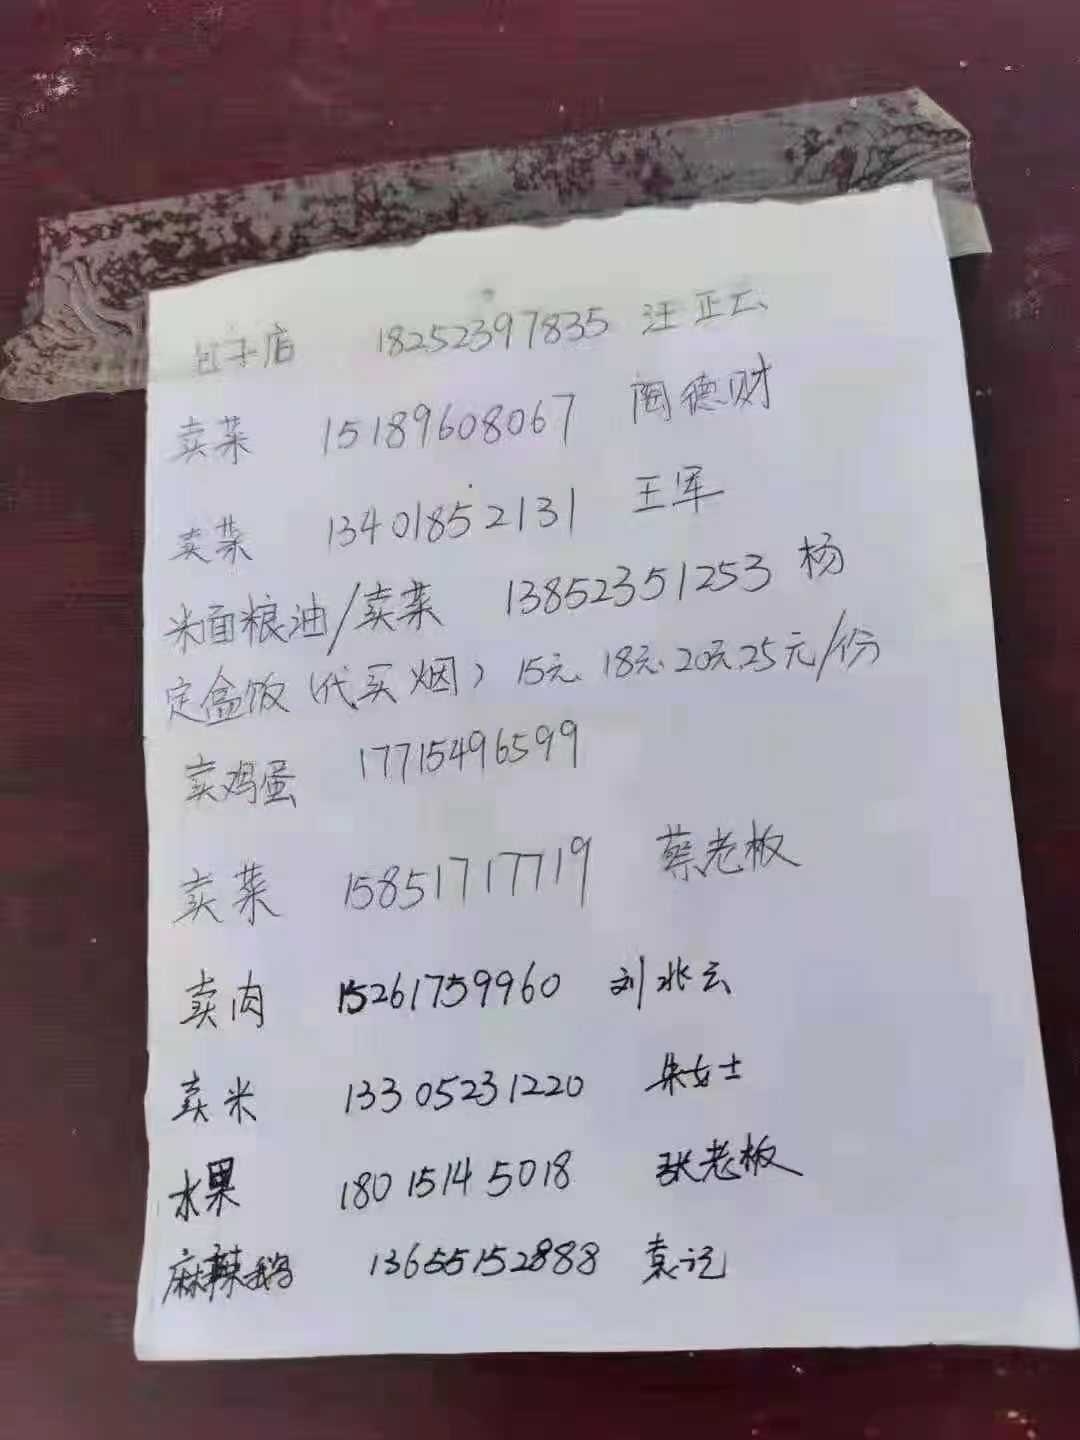 包子店 18252397835 汪正云
卖菜 15189608067 陶德财
卖菜 13401852131 王军
米面粮油/卖菜 13852351253 杨
定盒饭(代买烟) 15元.18元.20元.25元/份
卖鸡蛋 17715496599
卖菜 15851717719 蔡老板
卖肉 15261759960 刘兆云
卖米 13305231220 朱女士
水果 18015145018 张老板
麻辣鹅 13655152888 袁记